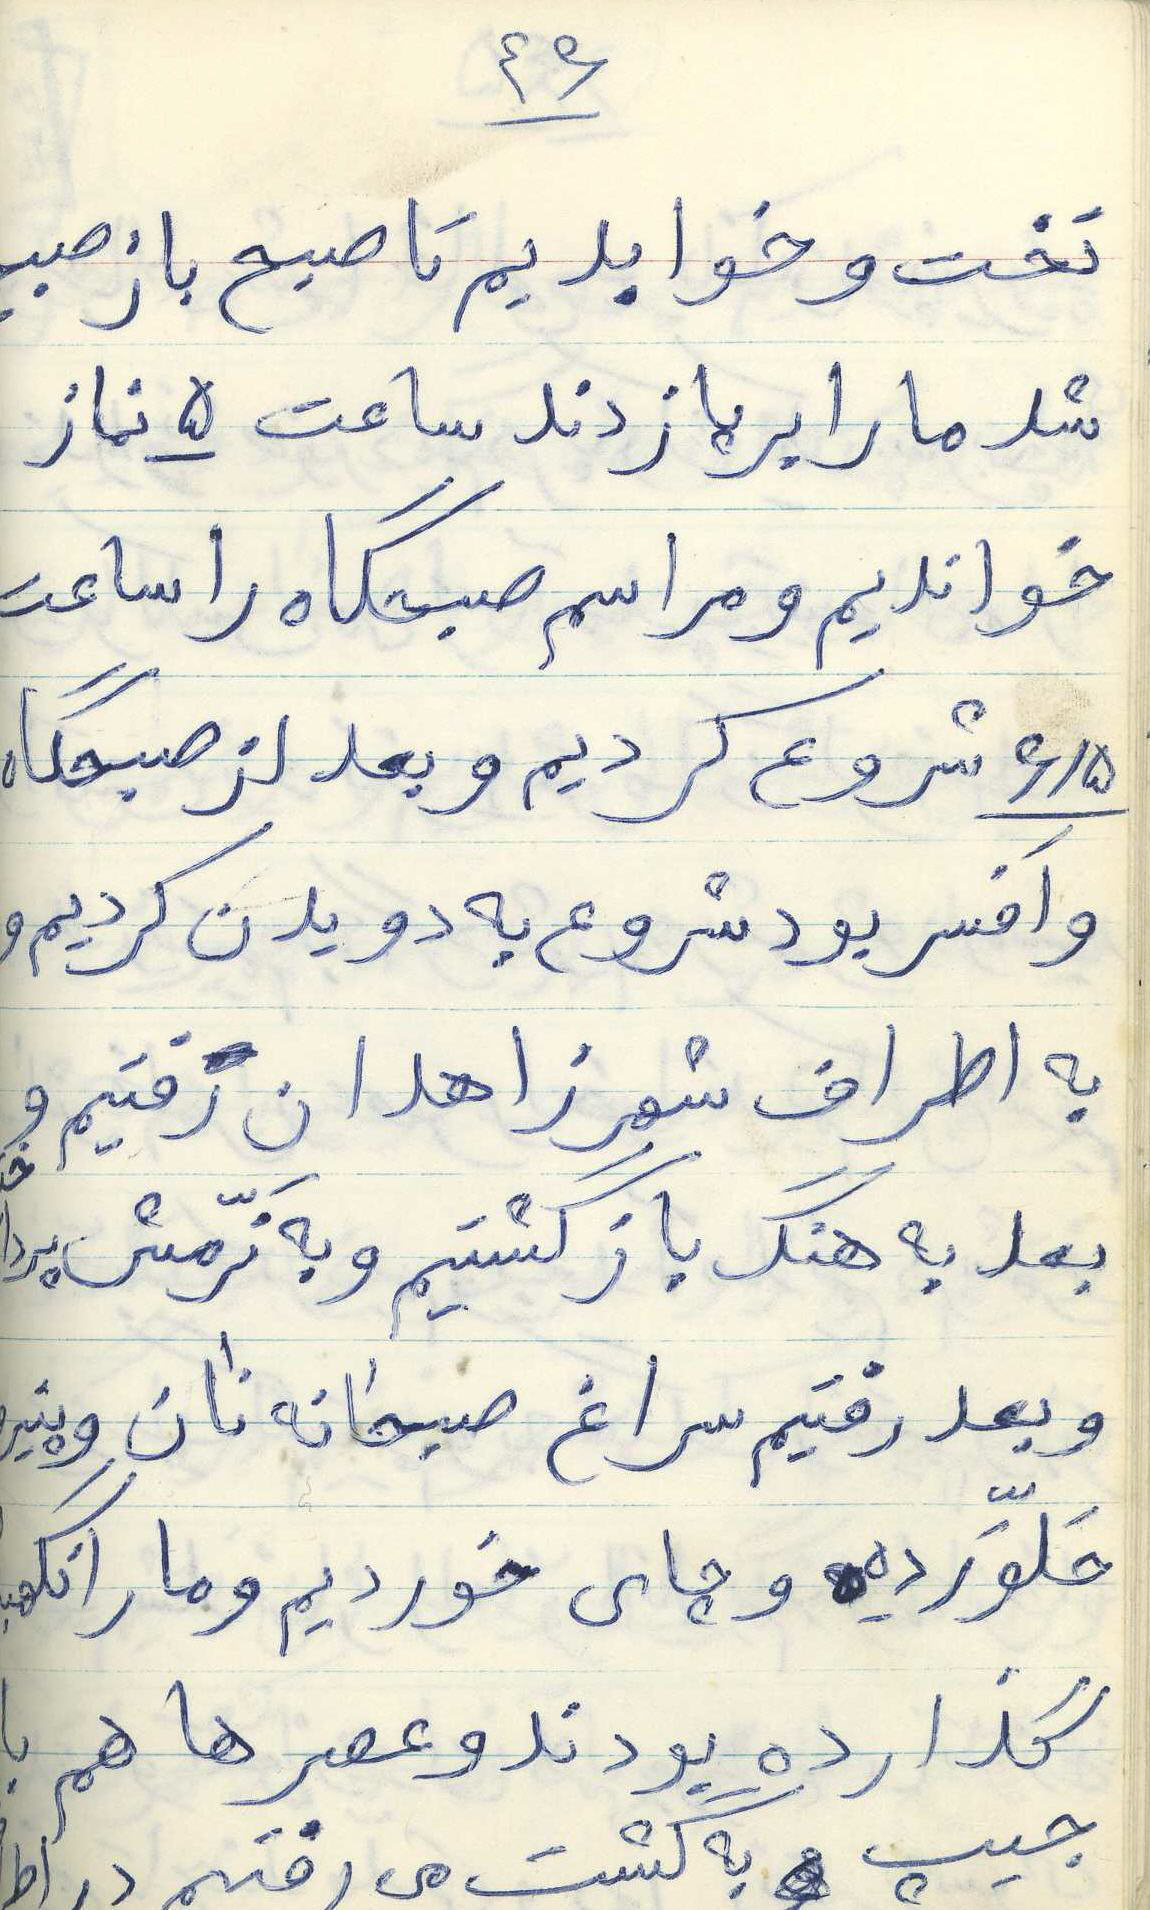 ۴۶
تخت و خوابدیم تا صبح باز صبح
شد ما را برپا زدند ساعت ۵ نماز
خواندیم و مراسم صبحگاه را ساعت
۶/۵ شروع کردیم و بعد از صبحگاه
و افسر بود شروع به دویدن کردیم و
به اطراف شهر زاهدان رفتیم و
بعد به هنگ بازگشتیم و به نرّمش
و بعد رفتیم سراغ صبحانه نان و پنیر
و چای خوردیم و ما را
گذارده بودند و عصرها هم با
جیپ به گشت می رفتیم در